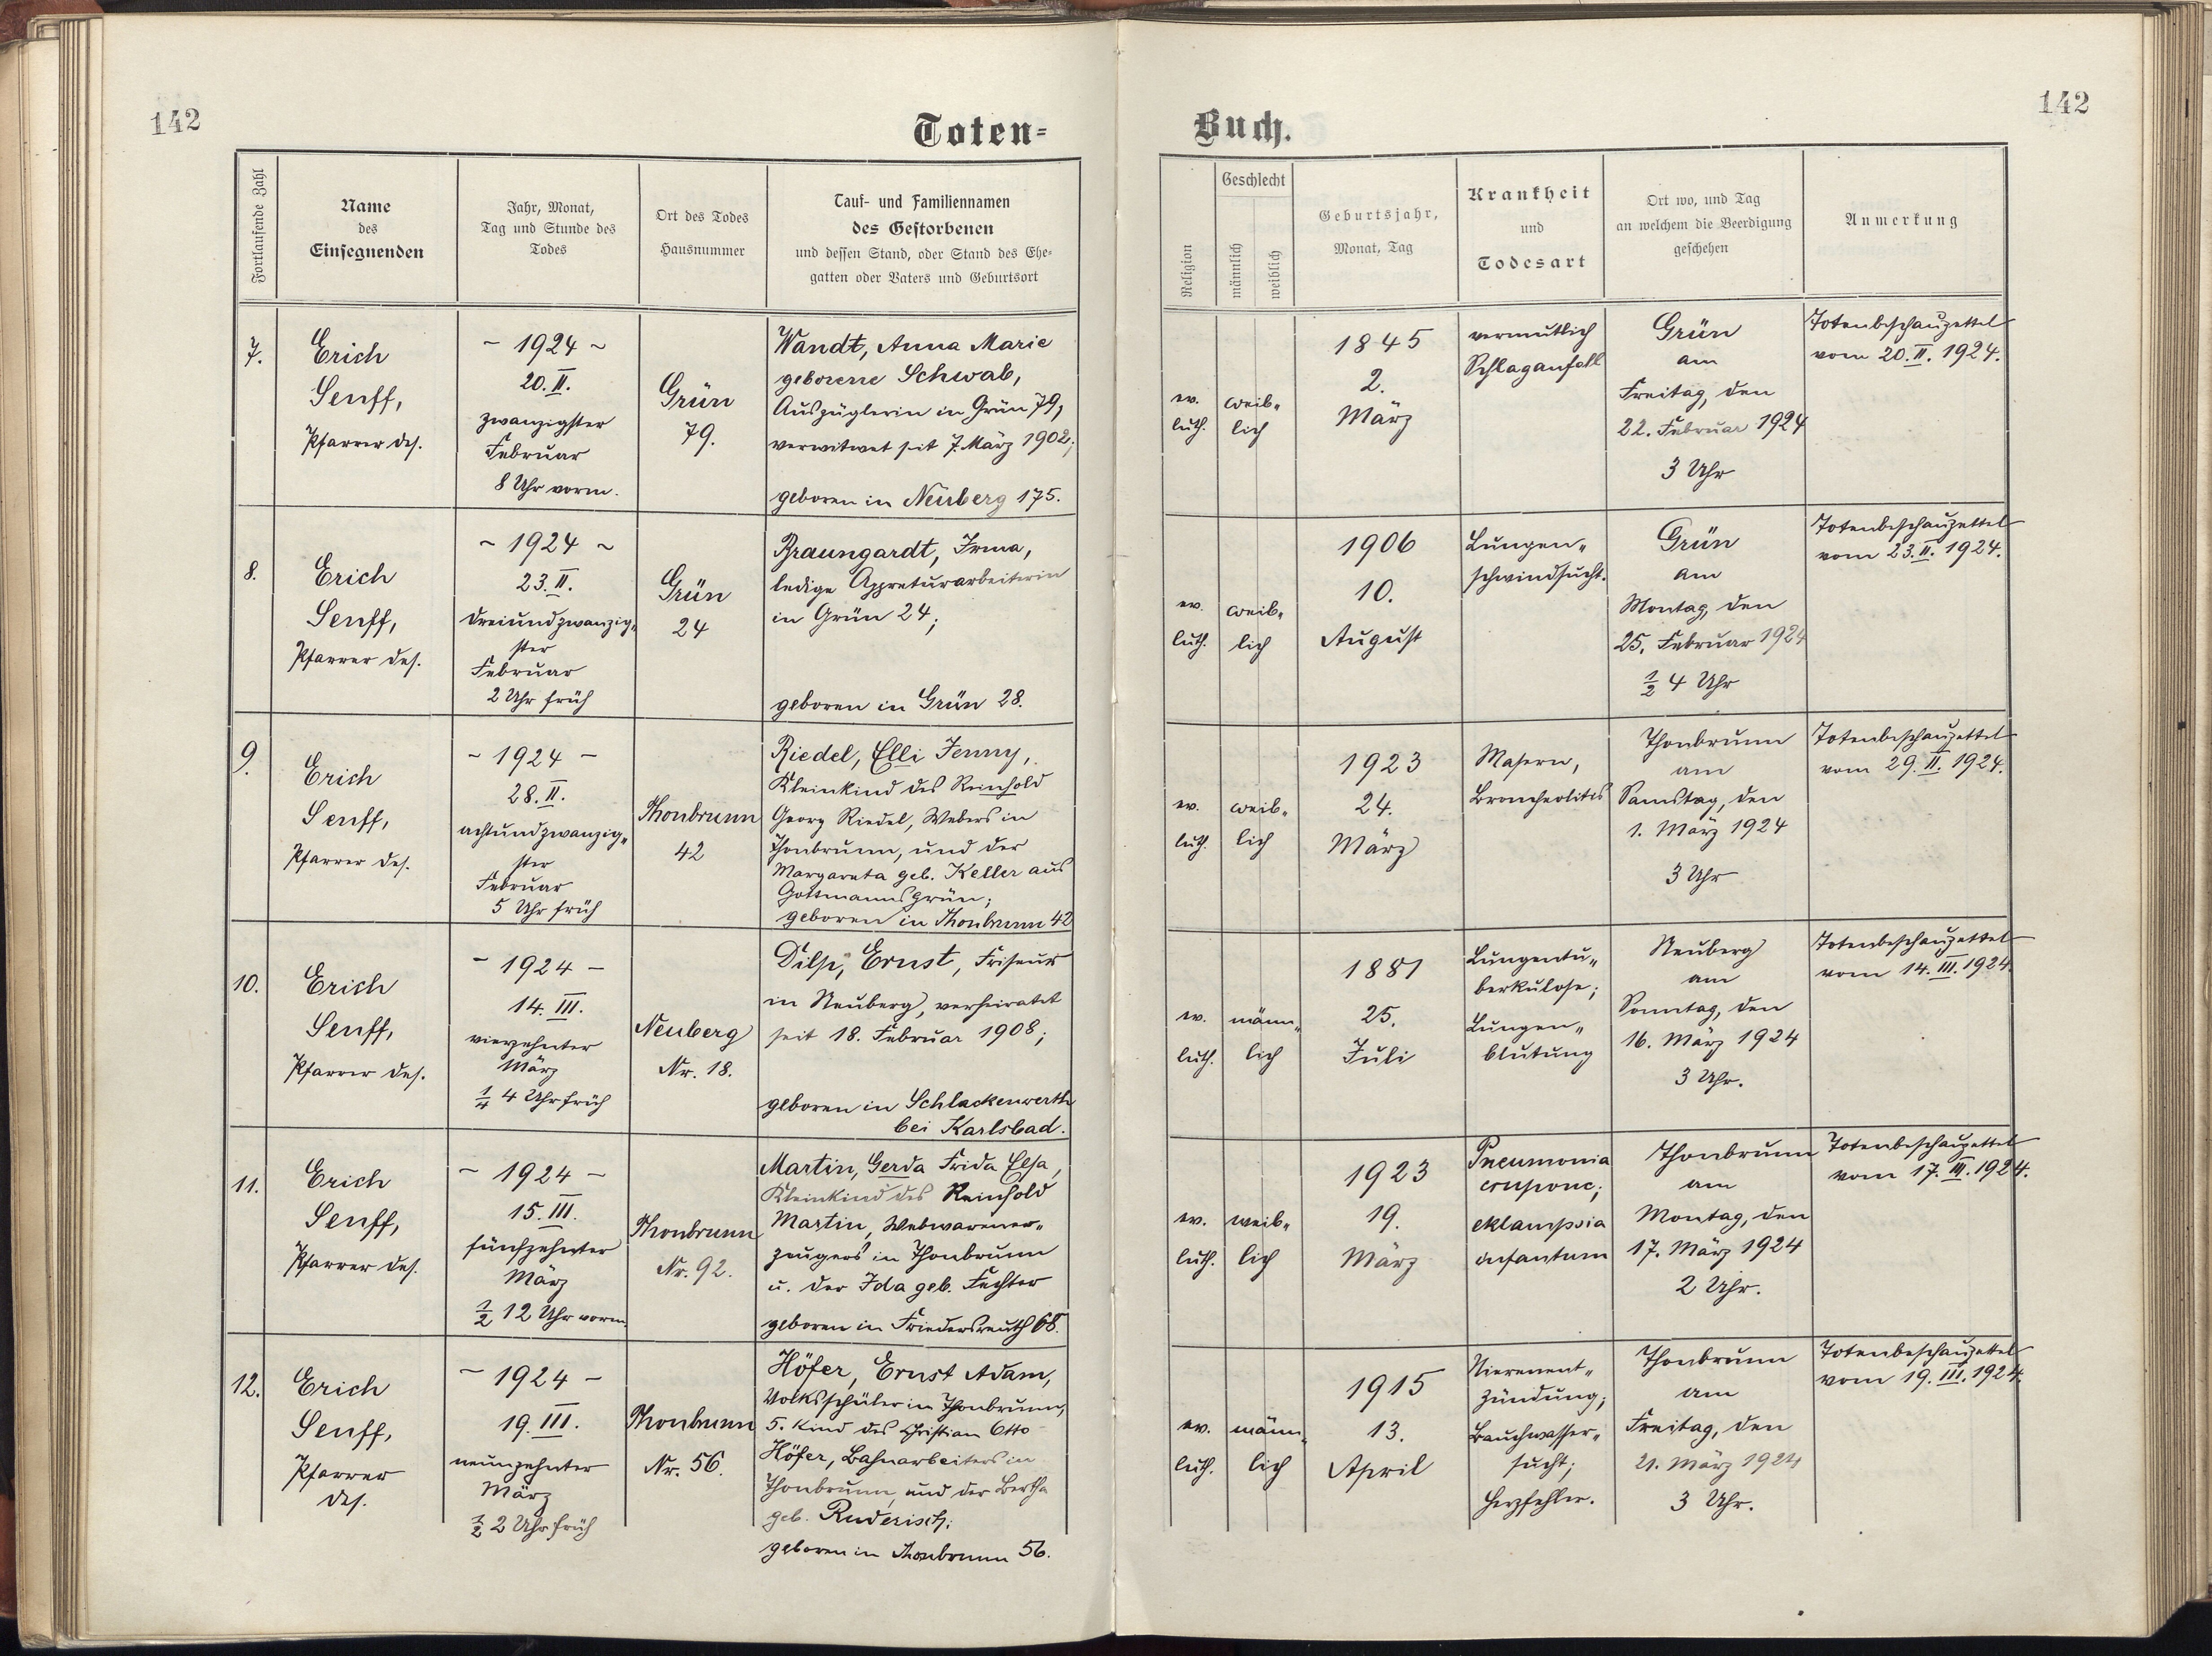 142
Toten=
Fortlaufende Zahl
Name
des
Einsegnenden
Jahr, Monat,
Tag und Stunde des
Todes
Ort des Todes
Hausnummer
Tauf- und Familiennamen
des Gestorbenen
und dessen Stand, oder Stand des Ehe-
gatten oder Vaters und Geburtsort
7.
Erich
Senff,
Pfarrer des.
~ 1924 ~
20. II.
zwanzigster
Februar
8 Uhr vorm.
Grün
79.
Wandt, Anna Marie
geborene Schwab,
Auszüglerin in Grün 79,
verwitwet seit 7. März 1902;
geboren in Neuberg 175.
8.
Erich
Senff,
Pfarrer des.
~ 1924 ~
23. II.
dreiundzwanzig„
ster
Februar
2 Uhr früh
Grün
24
Braungardt, Irma,
ledige Appreturarbeiterin
in Grün 24;
geboren in Grün 28.
9.
Erich
Senff,
Pfarrer des.
~ 1924 ~
28. II.
achtundzwanzig„
ster
Februar
5 Uhr früh
Thonbrunn
42
Riedel, Elli Jenny,
Kleinkind des Reinhold
Georg Riedel, Webers in
Thonbrunn, und der
Margareta geb. Keller aus
Gottmannsgrün;
geboren in Thonbrunn 42
10.
Erich
Senff,
Pfarrer des.
~ 1924 ~
14. III.
vierzehnter
März
1/4 4 Uhr früh
Neuberg
Nr. 18.
Dilp, Ernst, Friseur
in Neuberg, verheiratet
seit 18. Februar 1908;
geboren in Schlackenwerth
bei Karlsbad.
11.
Erich
Senff,
Pfarrer des.
~ 1924 ~
15. III.
fünfzehnter
März
1/2 12 Uhr vorm.
Thonbrunn
Nr. 92.
Martin, Gerda Frida Elsa,
Kleinkind des Reinhold
Martin, Webwarener„
zeugers in Thonbrunn
u. der Ida geb. Fechter
geboren in Friedersreuth 68.
12.
Erich
Senff,
Pfarrer
des.
~ 1924 ~
19. III.
neunzehnter
März
1/2 2 Uhr früh
Thonbrunn
Nr. 56.
Höfer, Ernst Adam,
Volksschüler in Thonbrunn,
5. Kind des Christian Otto
Höfer, Bahnarbeiters in
Thonbrunn, und der Bertha
geb. Ruderisch;
geboren in Thonbrunn 56.
142
Buch.
Religion
Geschlecht
männlich
weiblich
Geburtsjahr,
Monat, Tag
Krankheit
und
Todesart
Ort wo, und Tag
an welchem die Beerdigung
geschehen
Anmerkung
ev.
luth.
weib„
lich
1845
2.
März
vermutlich
Schlaganfall
Grün
am
Freitag, den
22. Februar 1924
3 Uhr
Totenbeschauzettel
vom 20. II. 1924.
ev.
luth.
weib„
lich
1906
10.
August
Lungen„
schwindsucht.
Grün
am
Montag, den
25. Februar 1924
1/2 4 Uhr
Totenbeschauzettel
vom 23. II. 1924.
ev.
luth.
weib„
lich
1923
24.
März
Masern,
Broncheolitis
Thonbrunn
am
Samstag, den
1. März 1924
3 Uhr
Totenbeschauzettel
vom 29. II. 1924.
ev.
luth.
männ„
lich
1881
25.
Juli
Lungentu„
berkulose;
Lungen„
blutung
Neuberg
am
Sonntag, den
16. März 1924
3 Uhr.
Totenbeschauzettel
vom 14. III. 1924.
ev.
luth.
weib„
lich
1923
19.
März
Pneumonia
eklampsia
infantum
Thonbrunn
am
Montag, den
17. März 1924
2 Uhr.
Totenbeschauzettel
vom 17. III. 1924.
ev.
luth.
männ„
lich
1915
13.
April
Nierenent„
zündung;
Bauchwasser„
sucht;
Herzfehler.
Thonbrunn
am
Freitag, den
21. März 1924
3 Uhr.
Totenbeschauzettel
vom 19. III. 1924.